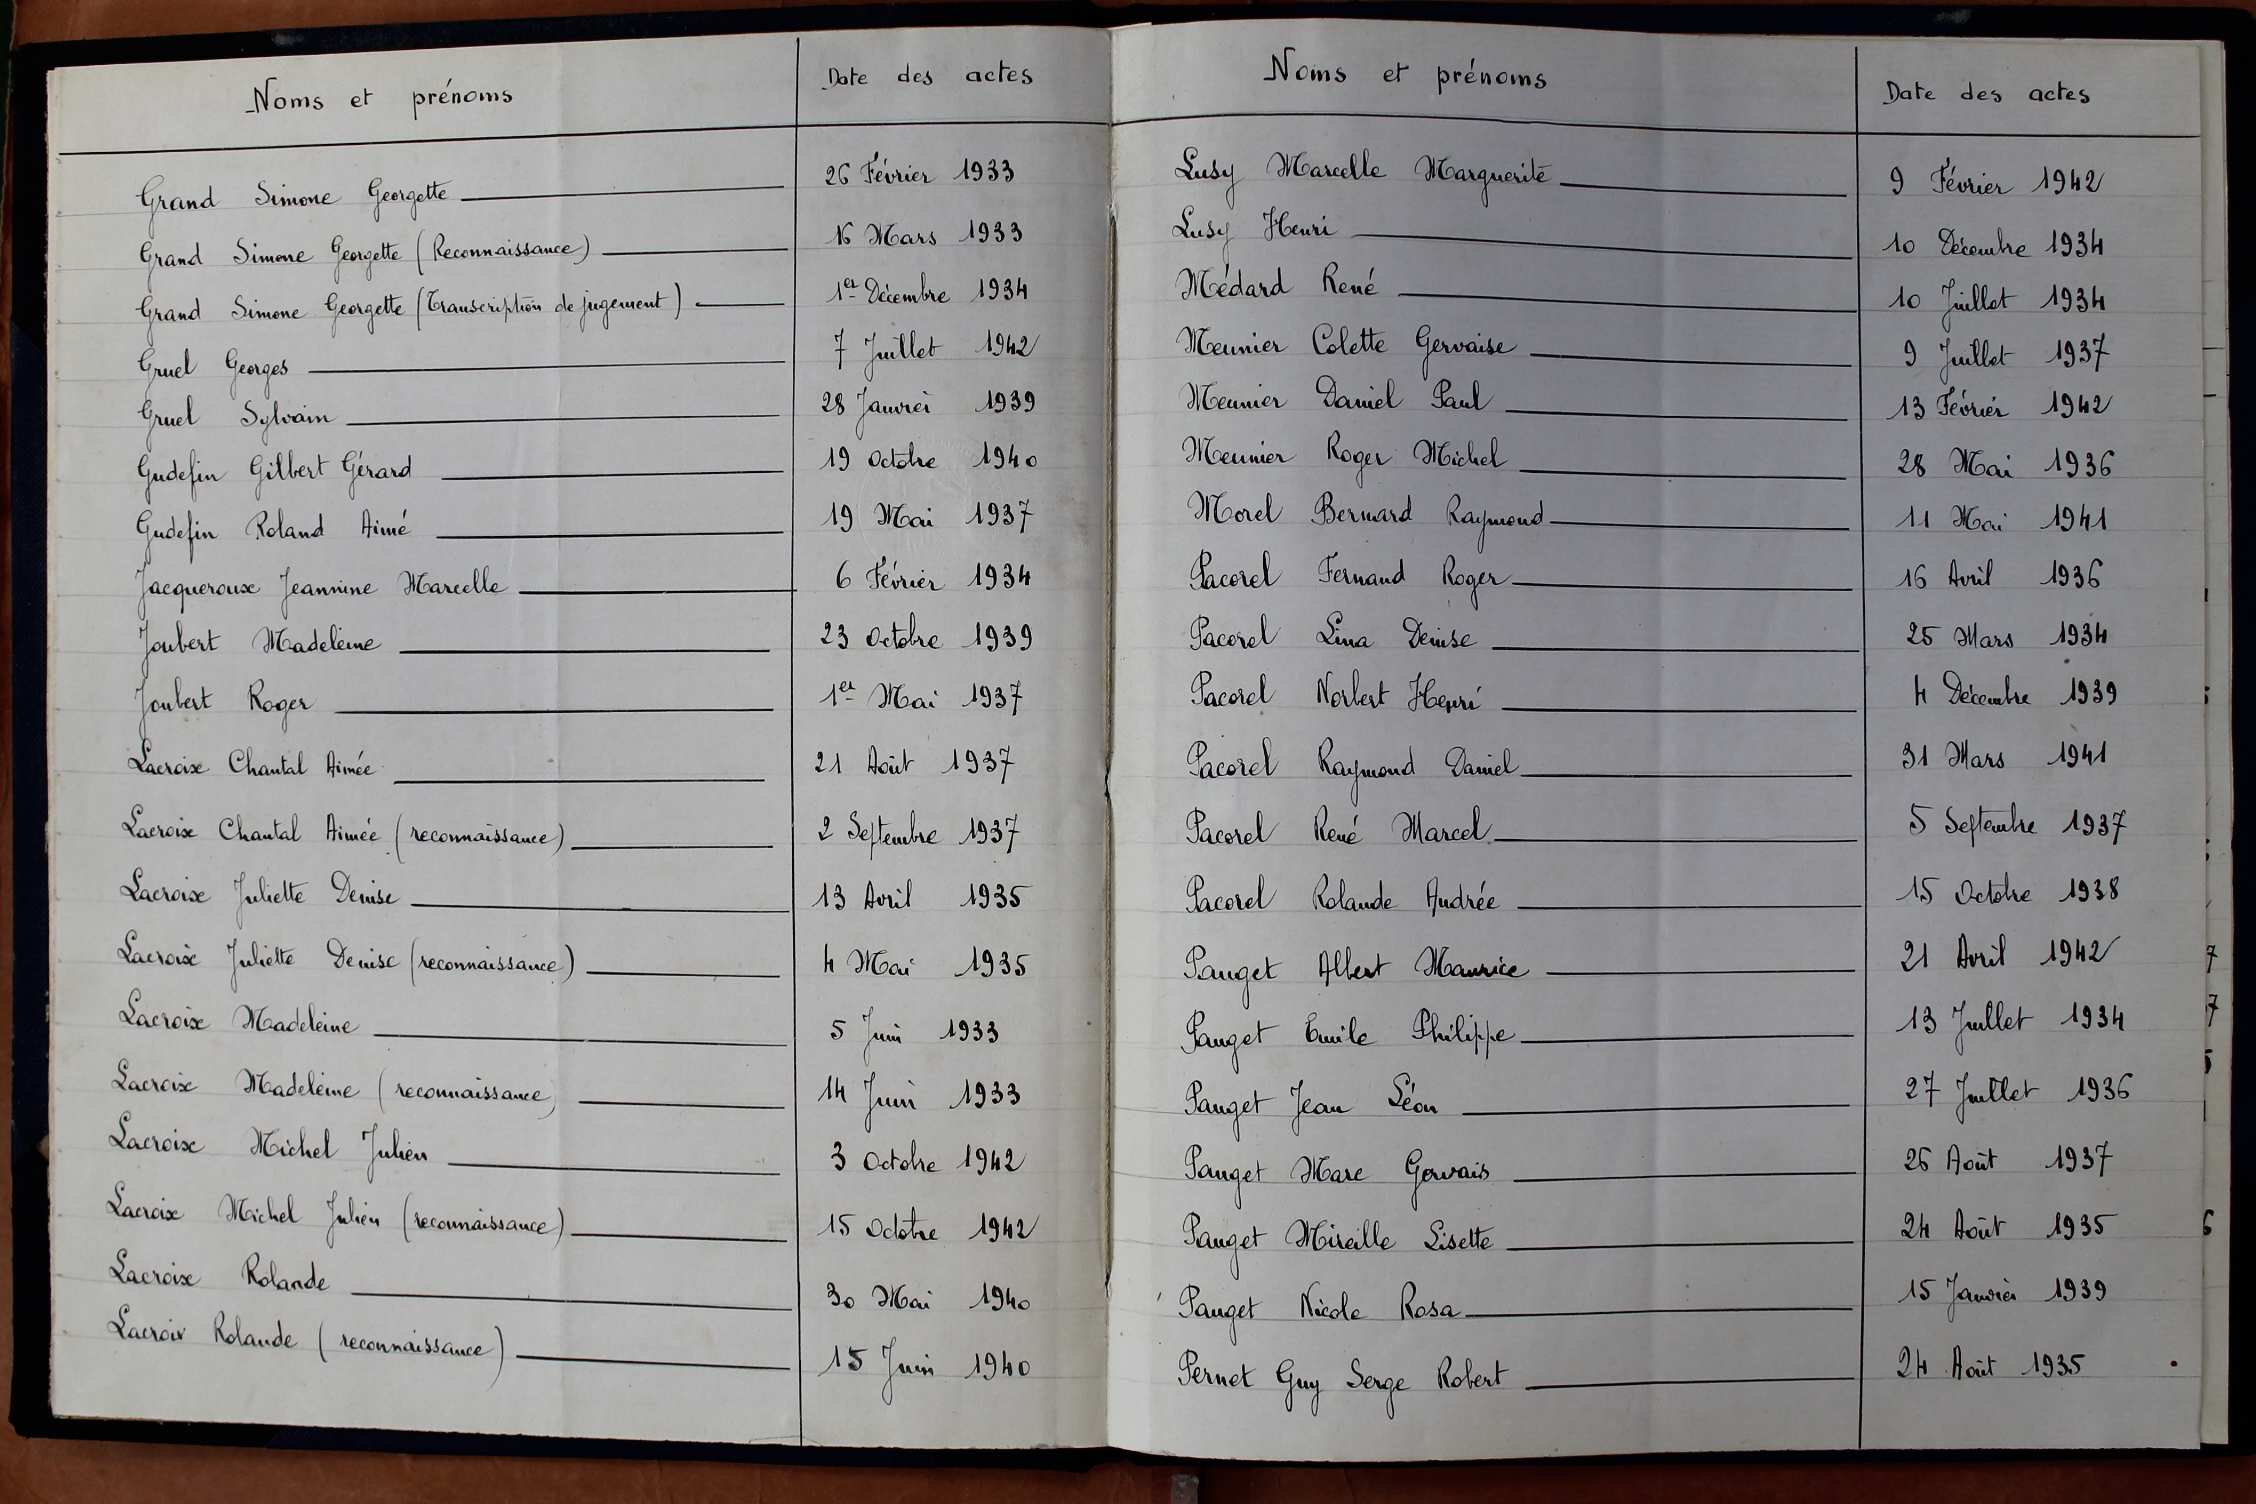 Noms et prénoms Date des actes
Grand Simone Georgette 26 Février 1933
Grand Simone Georgette (Reconnaissance) 16 Mars 1933
Grand Simone Georgette (Transcription de jugement) 1er Décembre 1934
Gruel Georges 7 Juillet 1942
Gruel Sylvain 28 Janvier 1939
Gudefin Gilbert Gérard 19 Octobre 1940
Gudefin Roland Aimé 19 Mai 1937
Jacqueroux Jeannine Marcelle 6 Février 1934
Joubert Madeleine 23 Octobre 1939
Joubert Roger 1er Mai 1937
Lacroix Chantal Aimée 21 Août 1937
Lacroix Chantal Aimée (reconnaissance) 2 Septembre 1937
Lacroix Juliette Denise 13 Avril 1935
Lacroix Juliette Denise (reconnaissance) 4 Mai 1935
Lacroix Madeleine 5 Juin 1933
Lacroix Madeleine (reconnaissance) 14 Juin 1933
Lacroix Michel Julien 3 Octobre 1942
Lacroix Michel Julien (reconnaissance) 15 Octobre 1942
Lacroix Rolande 30 Mai 1940
Lacroix Rolande (reconnaissance) 15 Juin 1940
Noms et prénoms Date des actes
Lusy Marcelle Marguerite 9 Février 1942
Lusy Henri 10 Décembre 1934
Médard René 10 Juillet 1934
Meunier Colette Gervaise 9 Juillet 1937
Meunier Daniel Paul 13 Février 1942
Meunier Roger Michel 28 Mai 1936
Morel Bernard Raymond 11 Mai 1941
Pacorel Fernand Roger 16 Avril 1936
Pacorel Lina Denise 25 Mars 1934
Pacorel Norbert Henri 4 Décembre 1939
Pacorel Raymond Daniel 31 Mars 1941
Pacorel René Marcel 5 Septembre 1937
Pacorel Rolande Andrée 15 Octobre 1938
Pauget Albert Maurice 21 Avril 1942
Pauget Emile Philippe 13 Juillet 1934
Pauget Jean Léon 27 Juillet 1936
Pauget Marc Gervais 26 Août 1937
Pauget Mireille Lisette 24 Août 1935
Pauget Nicole Rosa 15 Janvier 1939
Pernet Guy Serge Robert 24 Août 1935